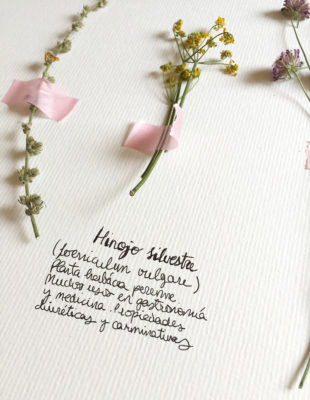 Hinojo silvestre
(Foeniculum vulgare)
Planta herbácea perenne.
Muchos usos en gastronomía
y medicina. Propiedades
diuréticas y carminativas